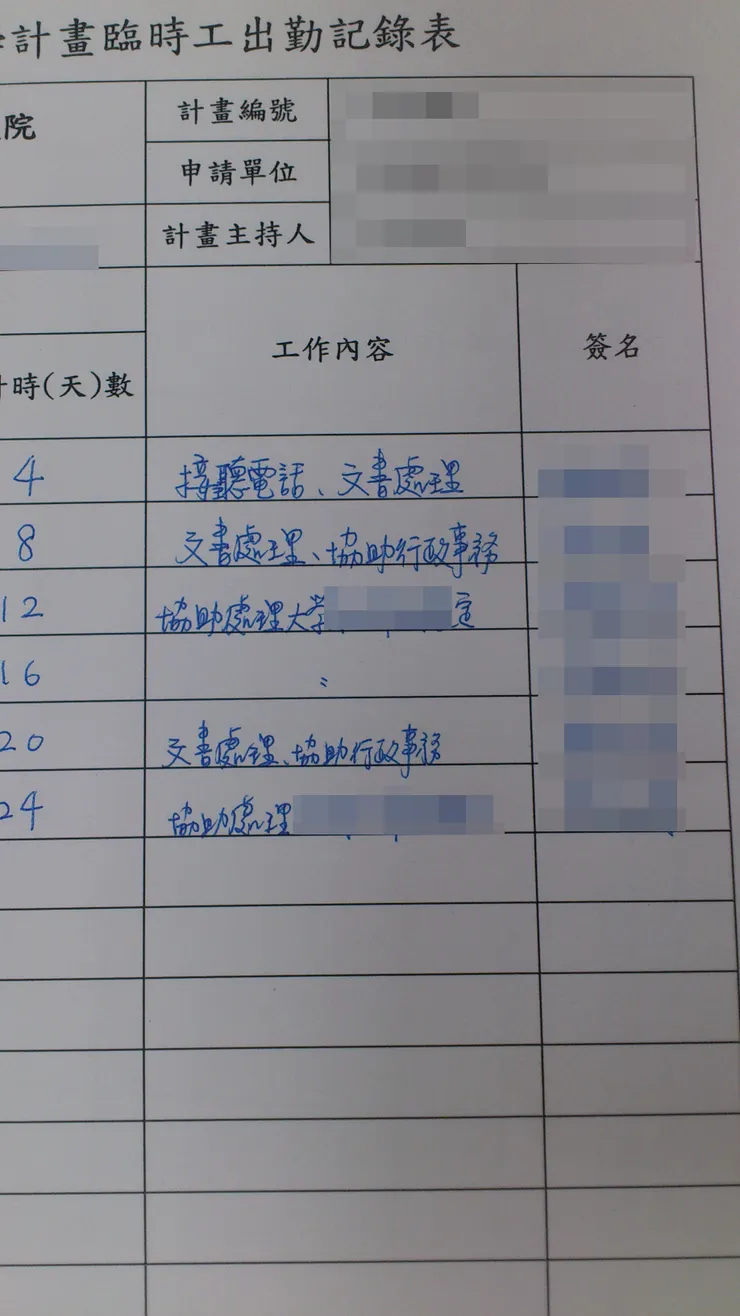 計畫臨時工出勤記錄表
院
計畫編號
申請單位
計畫主持人
工作內容
簽名
計時(天)數
4 接聽電話、文書處理
8 文書處理、協助行政事務
12 協助處理大學 定
16 〃
20 文書處理、協助行政事務
24 協助處理